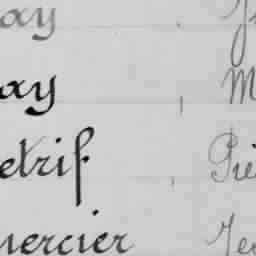 ay
ay M
etrif Pie
uercier Je